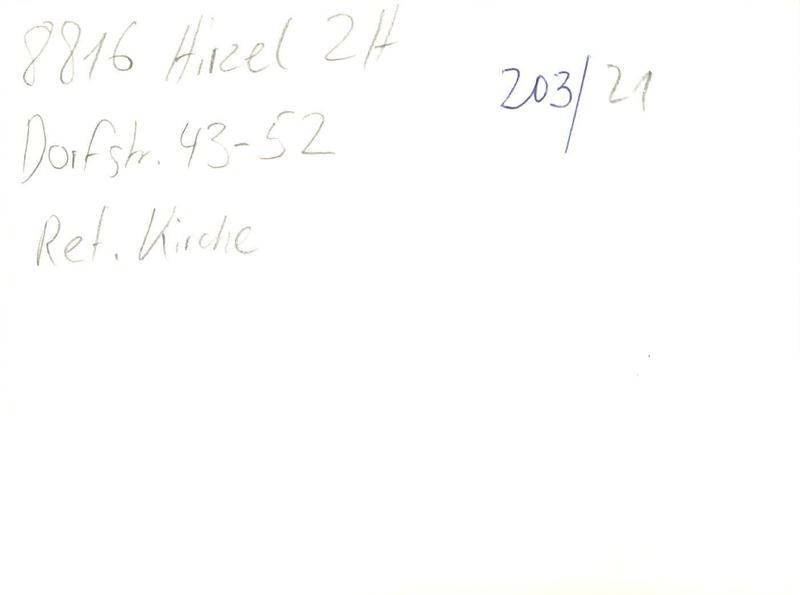 8816 Hirzel ZH
203/21
Dorfstr. 43-52
Ref. Kirche